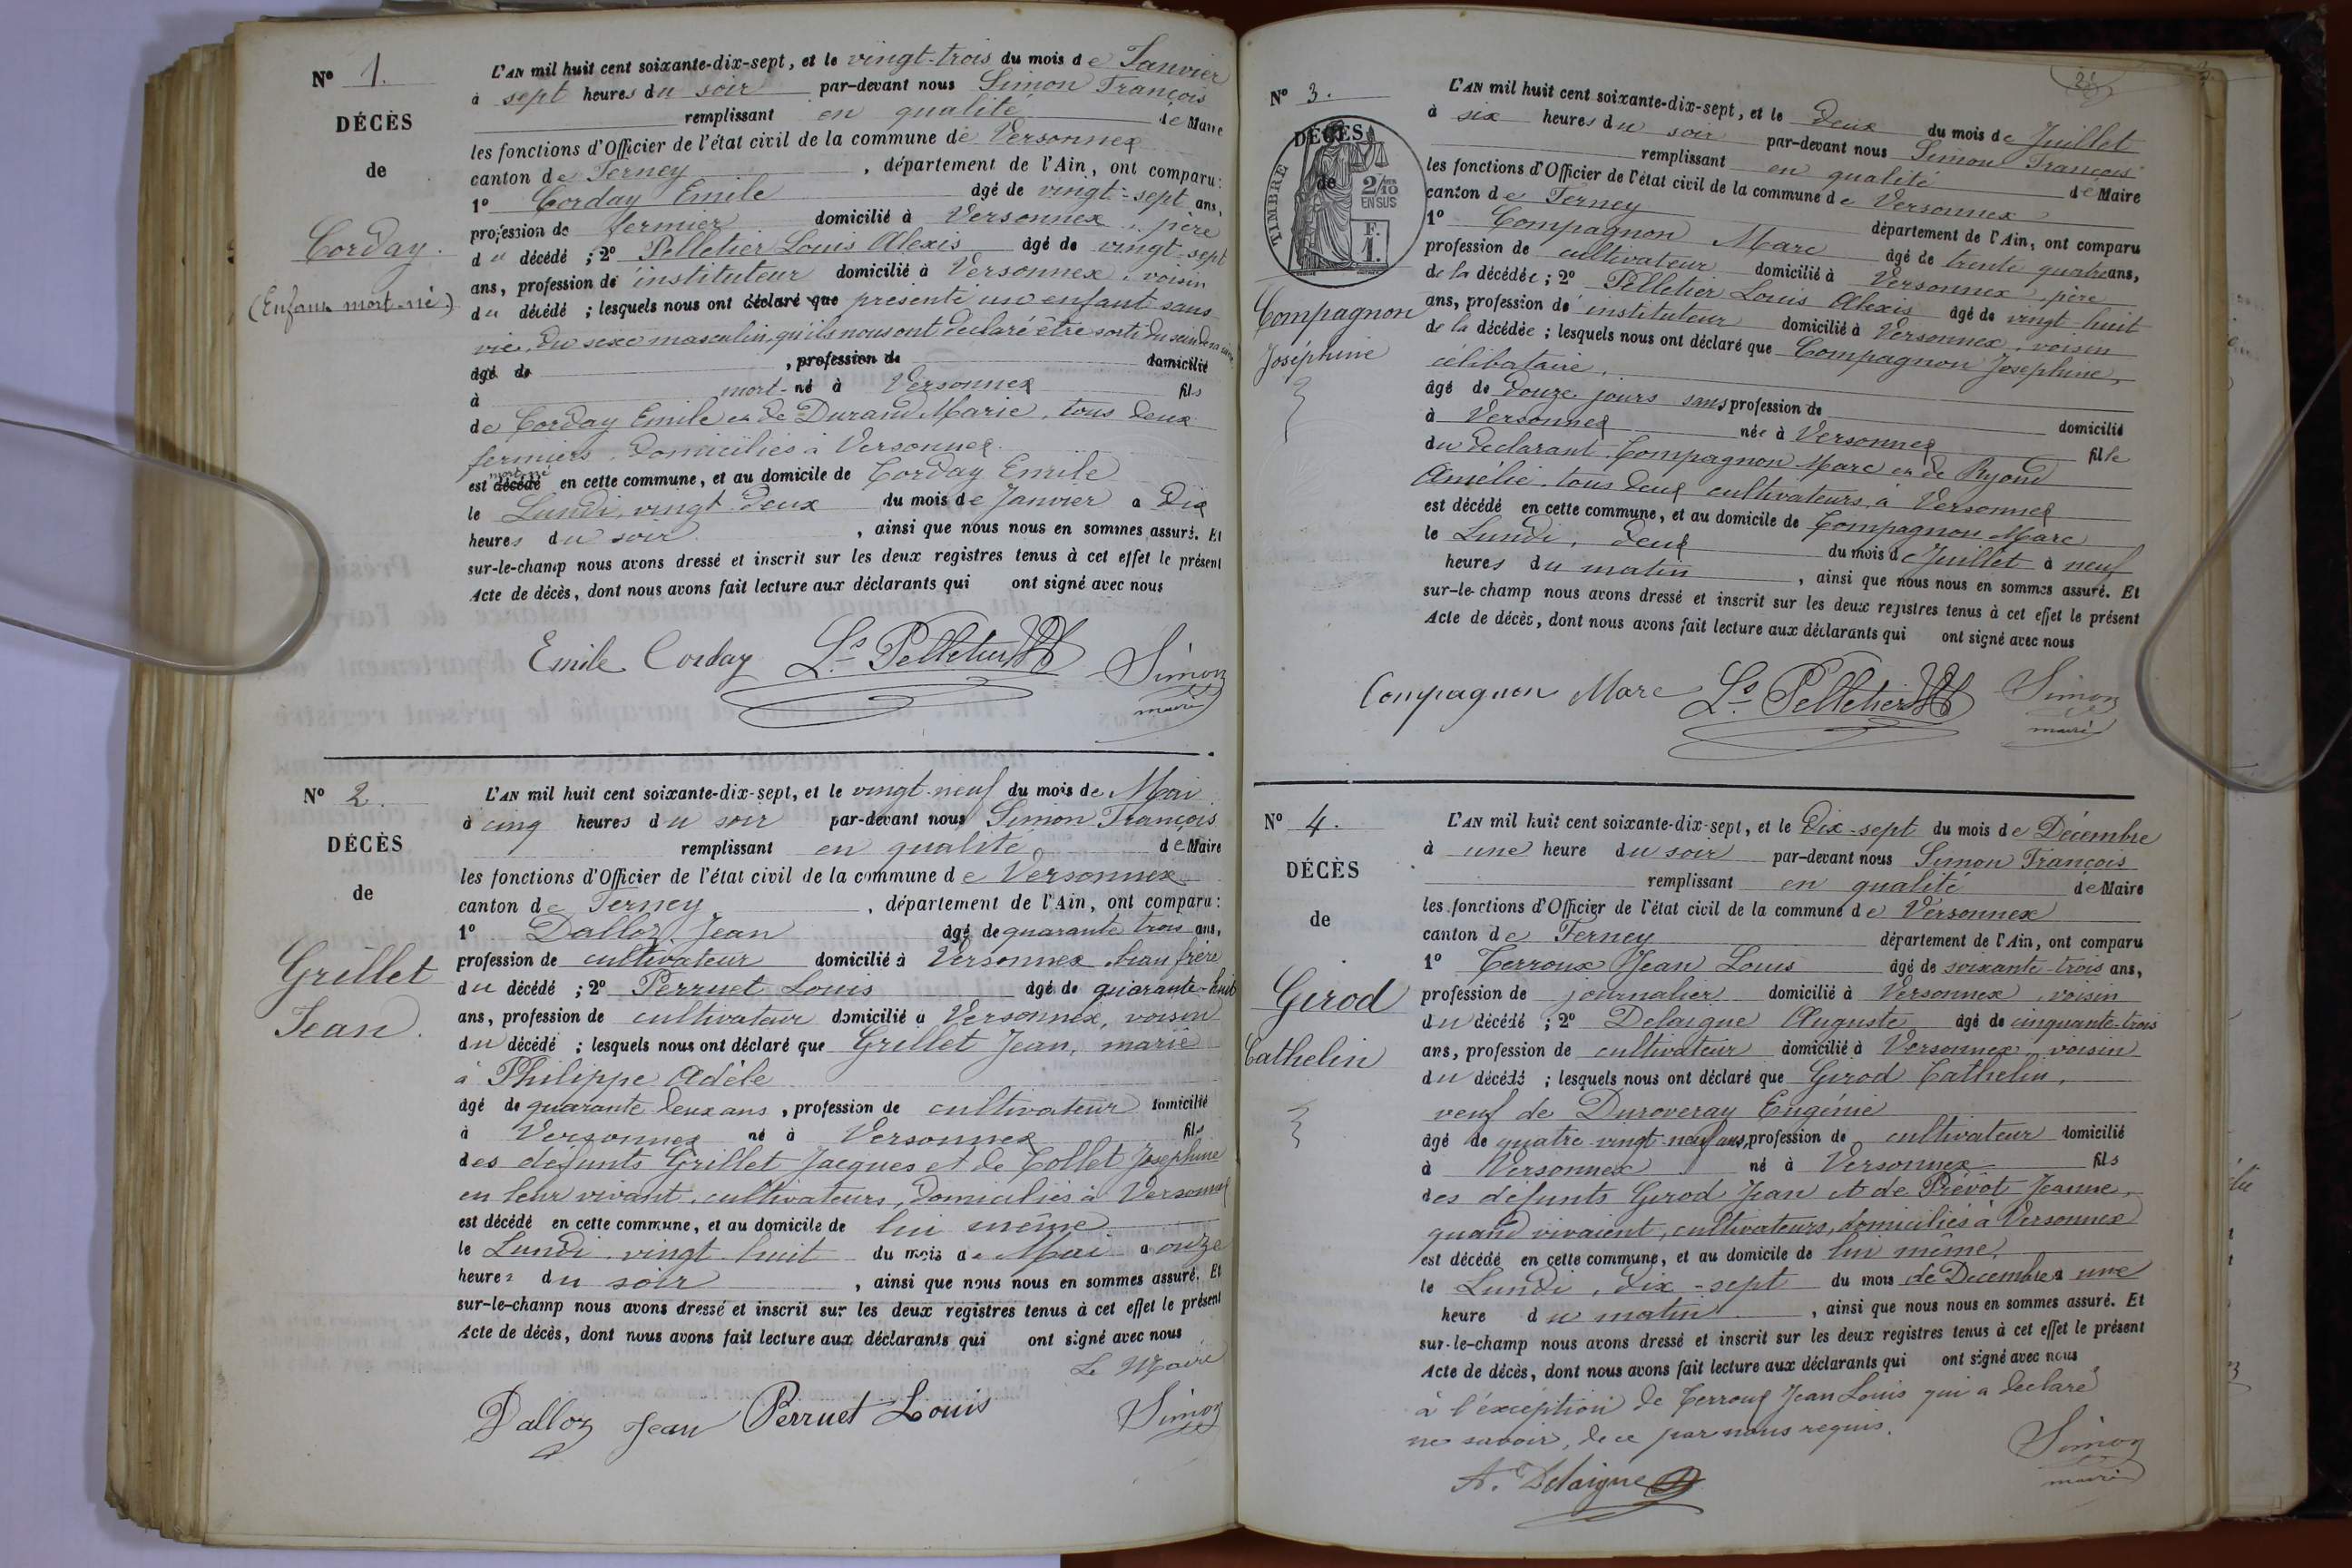 N° 1.
DÉCÈS
de
Corday.
(Enfant mort-né)
L'AN mil huit cent soixante-dix-sept, et le vingt-trois du mois de Janvier
à sept heures du soir par-devant nous Simon François
remplissant en qualité de Maire
les fonctions d'Officier de l'état civil de la commune de Versonnex
canton de Ferney, département de l'Ain, ont comparu:
1° Corday Emile âgé de vingt-sept ans,
profession de fermier domicilié à Versonnex, père
du décédé ; 2° Pelletier Louis Alexis âgé de vingt-sept
ans, profession de instituteur domicilié à Versonnex, voisin
du décédé ; lesquels nous ont déclaré que présenté un enfant sans
vie, du sexe masculin, qu'ils nous ont déclaré être sorti du sein de
âgé de , profession de domicilié
à mort-né à Versonnex fils
de Corday Emile et de Durand Marie, tous deux
fermiers, domiciliés à Versonnex.
est décédé mort-né en cette commune, et au domicile de Corday Emile
le Lundi, vingt-deux du mois de Janvier a dix
heures du soir , ainsi que nous nous en sommes assuré. Et
sur-le-champ nous avons dressé et inscrit sur les deux registres tenus à cet effet le présent
Acte de décès, dont nous avons fait lecture aux déclarants qui ont signé avec nous
Emile Corday Ls Pelletier Simon
maire
N° 2.
DÉCÈS
de
Grillet
Jean.
L'AN mil huit cent soixante-dix-sept, et le vingt-neuf du mois de Mai
à cinq heures du soir par-devant nous Simon François
remplissant en qualité de Maire
les fonctions d'Officier de l'état civil de la commune de Versonnex
canton de Ferney , département de l'Ain, ont comparu:
1° Dalloz Jean âgé de quarante trois ans,
profession de cultivateur domicilié à Versonnex, beau frère
du décédé ; 2° Perruet Louis âgé de quarante-huit
ans, profession de cultivateur domicilié à Versonnex, voisin
du décédé ; lesquels nous ont déclaré que Grillet Jean, marié
à Philippe Adèle
âgé de quarante deux ans , profession de cultivateur domicilié
à Versonnex né à Versonnex fils
des défunts Grillet Jacques et de Collet Josephine
en leur vivant, cultivateurs, domiciliés à Versonnex
est décédé en cette commune, et au domicile de lui même
le Lundi vingt huit du mois de Mai a onze
heures du soir , ainsi que nous nous en sommes assuré. Et
sur-le-champ nous avons dressé et inscrit sur les deux registres tenus à cet effet le présent
Acte de décès, dont nous avons fait lecture aux déclarants qui ont signé avec nous
Le Maire
Dalloz Jean Perruet Louis Simon
N° 3.
DÉCÈS
de
TIMBRE
2/10
EN SUS
F.
1.
Compagnon
Joséphine
L'AN mil huit cent soixante-dix-sept, et le deux du mois de Juillet
à six heures du soir par-devant nous Simon François
remplissant en qualité de Maire
les fonctions d'Officier de l'état civil de la commune de Versonnex
canton de Ferney département de l'Ain, ont comparu
1° Compagnon Marc âgé de trente quatre ans,
profession de cultivateur domicilié à Versonnex, père
de la décédée ; 2° Pelletier Louis Alexis âgé de vingt huit
ans, profession de instituteur domicilié à Versonnex, voisin
de la décédée ; lesquels nous ont déclaré que Compagnon Josephine,
célibataire,
âgé de douze jours sans profession de domicilié
à Versonnex née à Versonnex fille
du déclarant Compagnon Marc et de Ryond
Amélie, tous deux cultivateurs, à Versonnex
est décédé en cette commune, et au domicile de Compagnon Marc
le Lundi, deux du mois de Juillet à neuf
heures du matin , ainsi que nous nous en sommes assuré. Et
sur-le-champ nous avons dressé et inscrit sur les deux registres tenus à cet effet le présent
Acte de décès, dont nous avons fait lecture aux déclarants qui ont signé avec nous
Compagnon Marc Ls Pelletier Simon
maire
N° 4.
DÉCÈS
de
Girod
Cathelin
L'AN mil huit cent soixante-dix-sept, et le dix-sept du mois de Décembre
à une heure du soir par-devant nous Simon François
remplissant en qualité de Maire
les fonctions d'Officier de l'état civil de la commune de Versonnex
canton de Ferney département de l'Ain, ont comparu
1° Terroux Jean Louis âgé de soixante-trois ans,
profession de journalier domicilié à Versonnex, voisin
du décédé ; 2° Delaigue Auguste âgé de cinquante-trois
ans, profession de cultivateur domicilié à Versonnex voisin
du décédé ; lesquels nous ont déclaré que Girod Cathelin,
veuf de Duroveray Eugénie
âgé de quatre vingt neuf ans, profession de cultivateur domicilié
à Versonnex né à Versonnex fils
des défunts Girod Jean et de Prévot Jeanne,
quand vivaient, cultivateurs, domiciliés à Versonnex
est décédé en cette commune, et au domicile de lui même,
le Lundi, dix-sept du mois de Decembre à une
heure du matin , ainsi que nous nous en sommes assuré. Et
sur-le-champ nous avons dressé et inscrit sur les deux registres tenus à cet effet le présent
Acte de décès, dont nous avons fait lecture aux déclarants qui ont signé avec nous
à l'éxception de Terroux Jean Louis qui a declaré
ne savoir, de ce par nous requis.
A. Delaigue Simon
maire